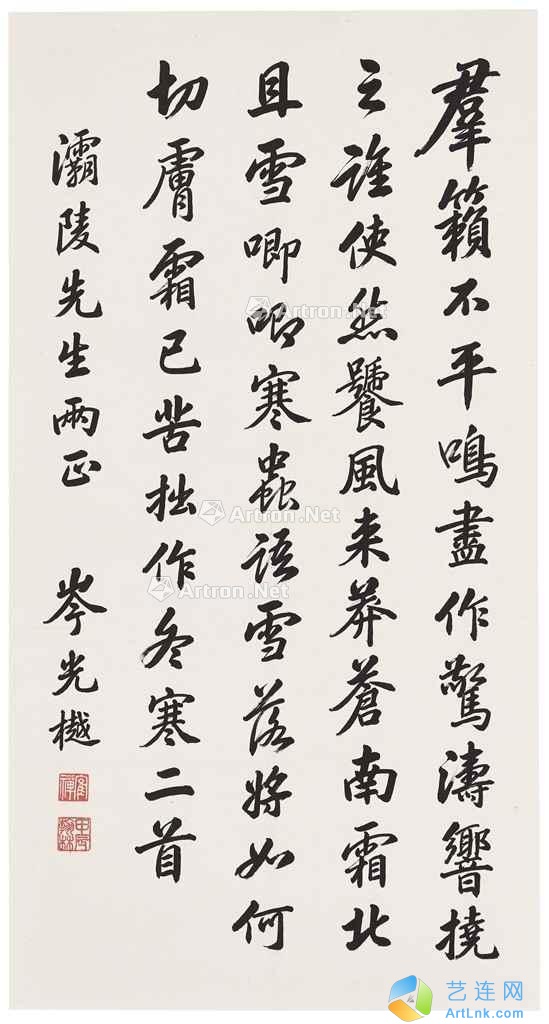 羣籟不平鳴盡作驚濤響撓
之誰使然饕風来莽蒼南霜北
且雪唧唧寒蟲語雪落将如何
切膚霜已苦拙作冬寒二首
灞陵先生兩正 岑光樾
Artron.Net
Artron.Net
Artron.Net
艺连网
ArtLnk.com